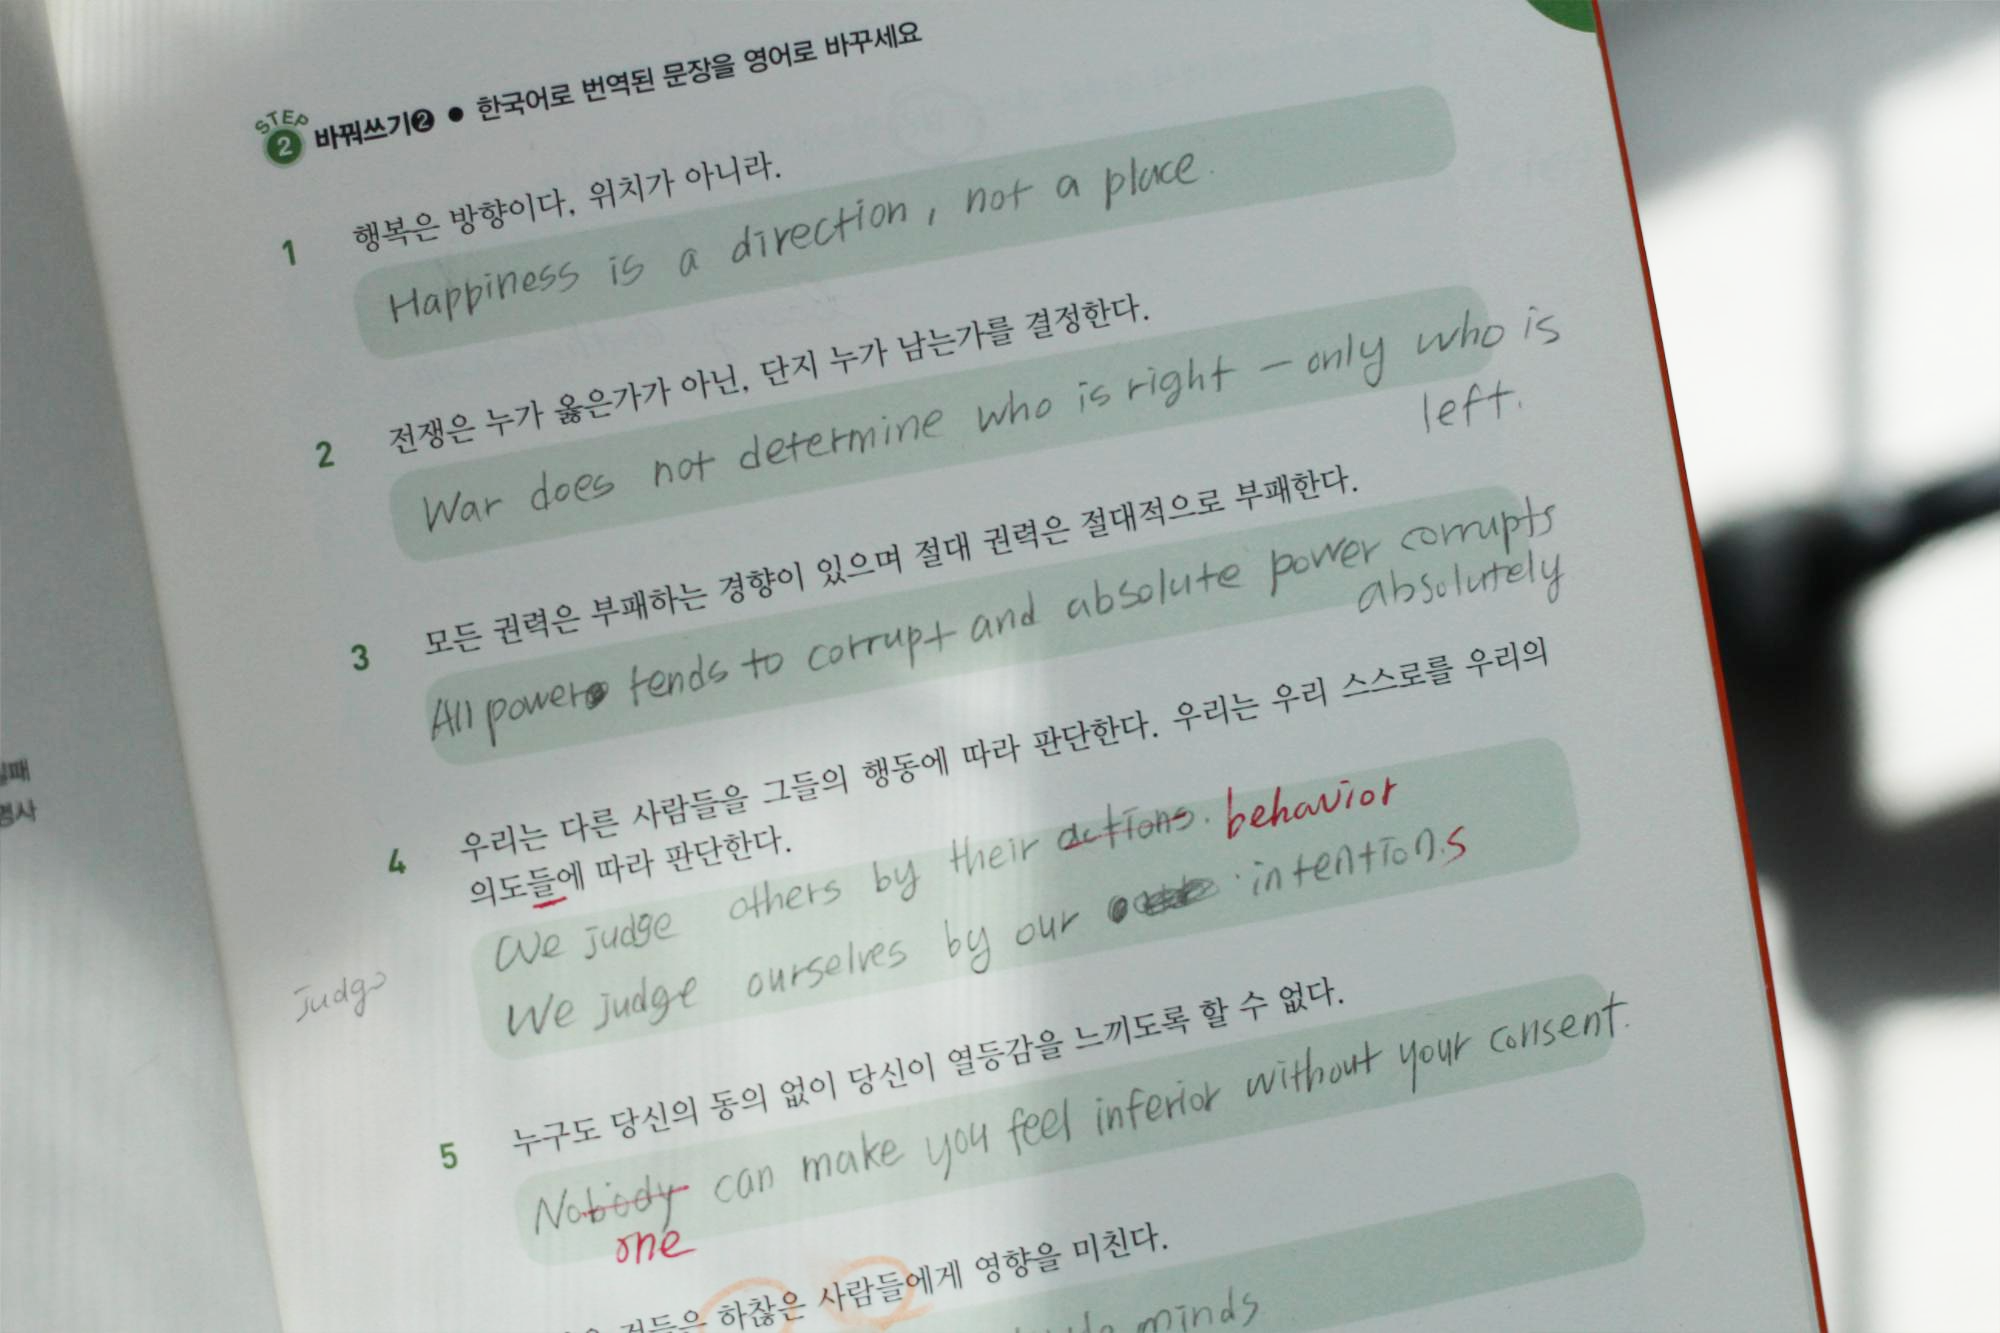 STEP 2 바꿔쓰기❷ ● 한국어로 번역된 문장을 영어로 바꾸세요
1 행복은 방향이다, 위치가 아니라.
Happiness is a direction, not a place.
2 전쟁은 누가 옳은가가 아닌, 단지 누가 남는가를 결정한다.
War does not determine who is right – only who is
left.
3 모든 권력은 부패하는 경향이 있으며 절대 권력은 절대적으로 부패한다.
All power tends to corrupt and absolute power corrupts
absolutely
4 우리는 다른 사람들을 그들의 행동에 따라 판단한다. 우리는 우리 스스로를 우리의
의도들에 따라 판단한다.
We judge others by their actions. behavior
We judge ourselves by our intentions
judge
5 누구도 당신의 동의 없이 당신이 열등감을 느끼도록 할 수 없다.
Nobody can make you feel inferior without your consent.
one
하찮은 사람들에게 영향을 미친다.
minds